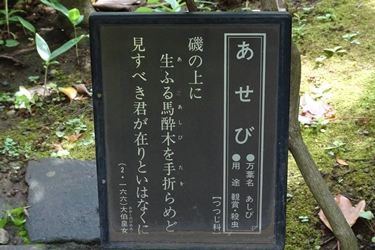 あせび
●万葉名 あしび
●用途 観賞・殺虫
[つつじ科]
磯の上に
生ふる馬酔木を手折らめど
見すべき君が在りといはなくに
(2・一六六)大伯皇女